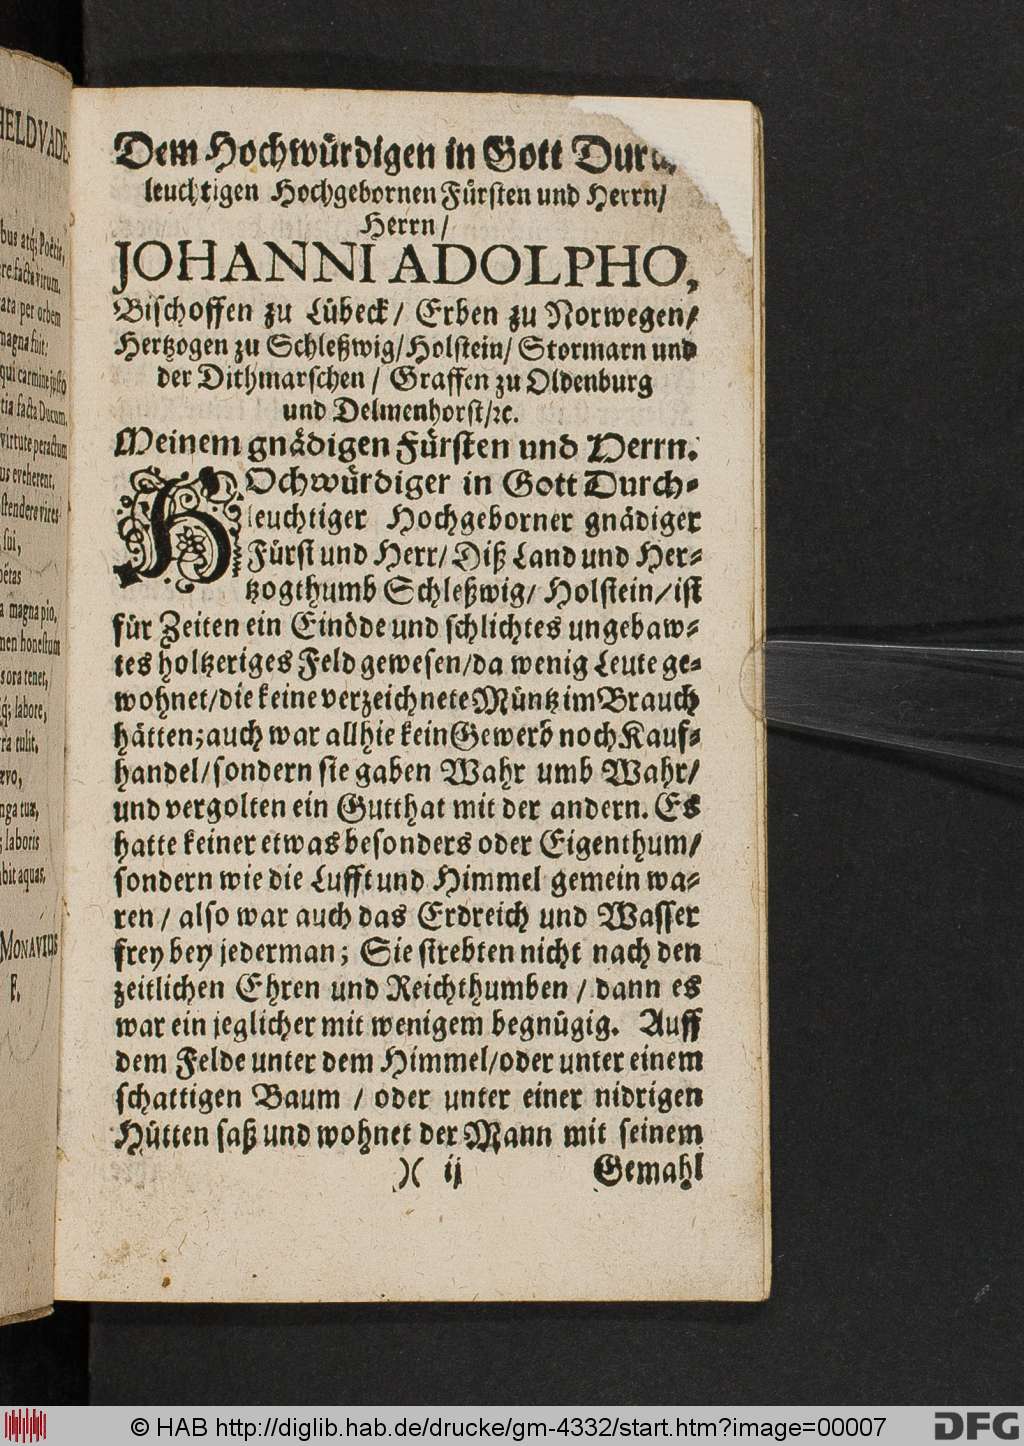 HELDVADE.
bus atq; Poëtis,
re facta virum,
ara per orbem
magna fuit:
qui carmine justo
tia facta Ducum,
virtute peractum
us eveherent,
stendere vires
sui,
oëtas
a magna pio,
men honestum
sora tenet,
q; labore,
ra tulit,
ævo,
nga tua,
; laboris
abit aquas,
MONAVIUS
F.
Dem Hochwürdigen in Gott Durc
leuchtigen Hochgebornen Fürsten und Herrn/
Herrn/
JOHANNI ADOLPHO,
Bischoffen zu Lübeck/ Erben zu Norwegen/
Hertzogen zu Schleßwig/Holstein/ Stormarn und
der Dithmarschen/ Graffen zu Oldenburg
und Delmenhorst/ꝛc.
Meinem gnädigen Fürsten und Herrn.
HOchwürdiger in Gott Durch-
leuchtiger Hochgeborner gnädiger
Fürst und Herr/ Diß Land und Her-
tzogthumb Schleßwig/ Holstein/ist
für Zeiten ein Einöde und schlichtes ungebaw-
tes holtzeriges Feld gewesen/da wenig Leute ge-
wohnet/die keine verzeichnete Müntz im Brauch
hätten; auch war allhie kein Gewerb noch Kauf-
handel/sondern sie gaben Wahr umb Wahr/
und vergolten ein Gutthat mit der andern. Es
hatte keiner etwas besonders oder Eigenthum/
sondern wie die Lufft und Himmel gemein wa-
ren/ also war auch das Erdreich und Wasser
frey bey jederman; Sie strebten nicht nach den
zeitlichen Ehren und Reichthumben/dann es
war ein jeglicher mit wenigem begnügig. Auff
dem Felde unter dem Himmel/oder unter einem
schattigen Baum / oder unter einer nidrigen
Hütten saß und wohnet der Mann mit seinem
)( ij Gemahl
© HAB http://diglib.hab.de/drucke/gm-4332/start.htm?image=00007 DFG